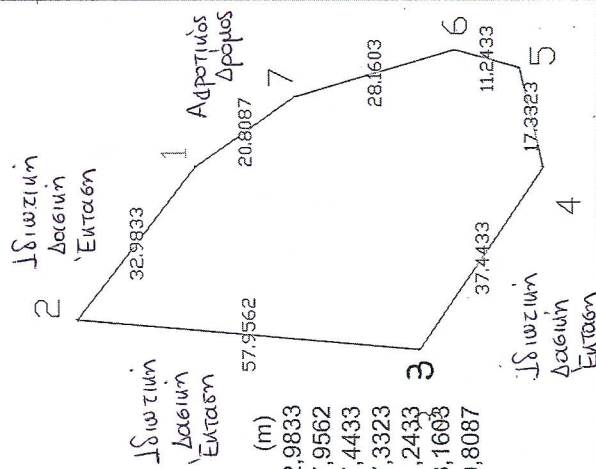 Ιδιωτική
Δασική
Έκταση
2
32.9833
1
Αγροτικός
Δρόμος
20.8087
7
28.1603
6
11.2433
5
17.3323
4
37.4433
3
57.9562
Ιδιωτική
Δασική
Έκταση
Ιδιωτική
Δασική
Έκταση
(m)
,9833
,9562
,4433
,3323
,2433
,1603
,8087